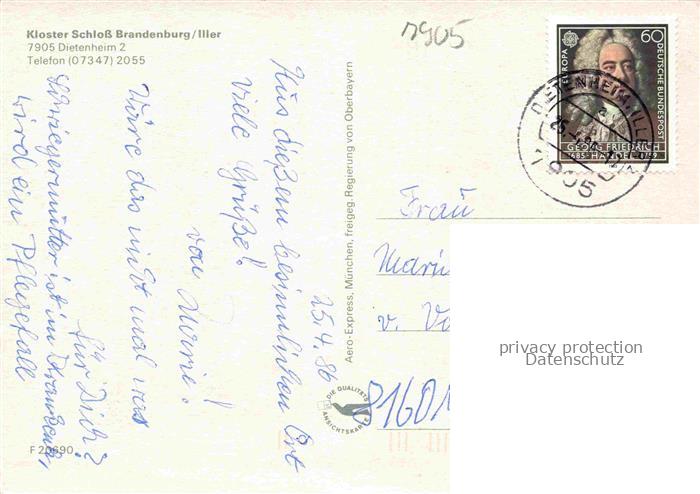 Kloster Schloß Brandenburg/Iller
7905 Dietenheim 2
Telefon (07347) 2055
7905
EUROPA
60
DEUTSCHE BUNDESPOST
GEORG FRIEDRICH
1685 HÄNDEL 1759
DIETENHEIM, ILLER
a
7905
25.4.86
Aus diesem besinnlichen Ort
viele Grüße!
von
Wäre das nicht mal was
für Dich?
Schwiegermutter ist im Krankenh.,
wird ein Pflegefall
Aero-Express, München, freigeg. Regierung von Oberbayern
DIE QUALITÄTS
ANSICHTSKARTE
Frau
v.
8160
privacy protection
Datenschutz
F 20690